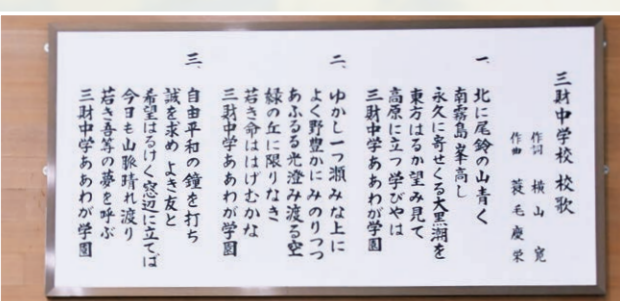 三財中学校 校歌
作詞 横山 寛
作曲 蓑毛慶栄
一、
北に尾鈴の山青く
南霧島峯高し
永久に寄せくる大黒潮を
東方はるか望み見て
高原に立つ学びやは
三財中学ああわが学園
二、
ゆかし一つ瀬みな上に
よく野豊かにみのりつつ
あふるる光澄み渡る空
緑の丘に限りなき
若き命ははげむかな
三財中学ああわが学園
三、
自由平和の鐘を打ち
誠を求め よき友と
希望はるけく窓辺に立てば
今日も山脈晴れ渡り
若き吾等の夢を呼ぶ
三財中学ああわが学園